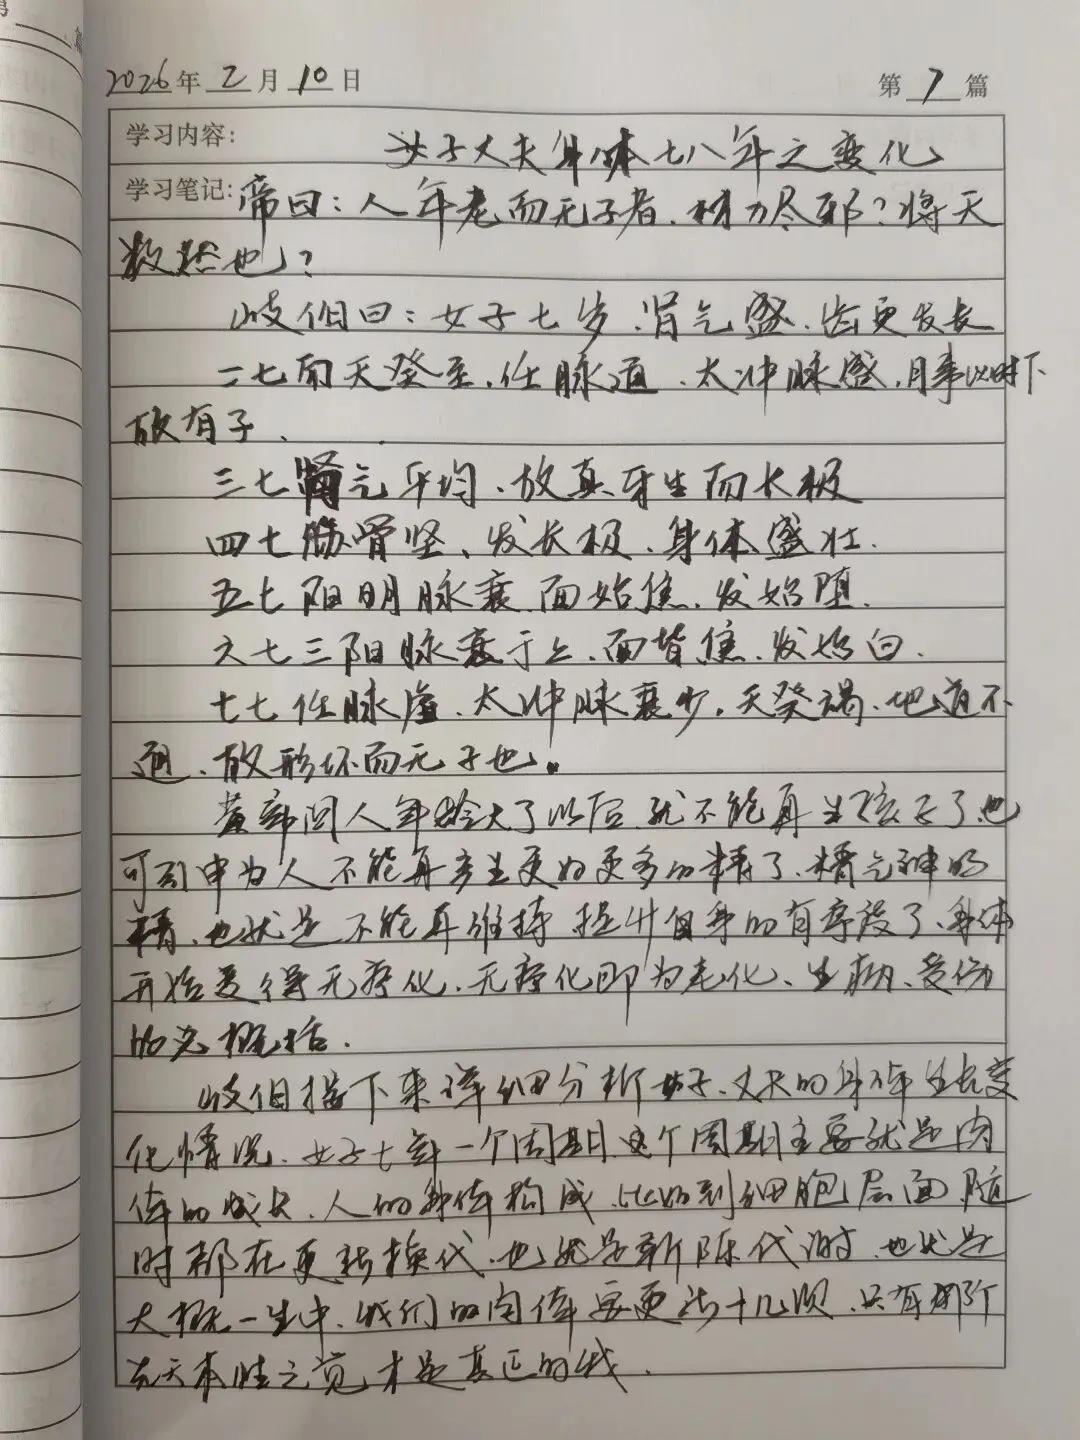 2026年2月10日 第7篇
学习内容: 女子丈夫身体七八年之变化
学习笔记: 帝曰：人年老而无子者、材力尽邪？将天
数然也？
岐伯曰：女子七岁、肾气盛、齿更发长
二七而天癸至、任脉通、太冲脉盛、月事以时下
故有子、
三七肾气平均、故真牙生而长极
四七筋骨坚、发长极、身体盛壮.
五七阳明脉衰、面始焦、发始堕.
六七三阳脉衰于上、面皆焦、发始白.
七七任脉虚、太冲脉衰少、天癸竭、地道不
通、故形坏而无子也。
黄帝问人年龄大了以后、就不能再生孩子了、也
可引申为人不能再产生更好更多的精了、精气神的
精、也就是不能再维持提升自身的有序没了、身体
开始变得无序化、无序化即为老化、生病、受伤
的总概括.
岐伯接下来详细分析女子、丈夫的身体生长变
化情况、女子七年一个周期、这个周期主要就是肉
体的成长、人的身体构成、比如到细胞层面、随
时都在更新换代、也就是新陈代谢、也就是
大概一生中、我们的肉体要更新十几次、只有那个
先天本性之觉才是真正的我.